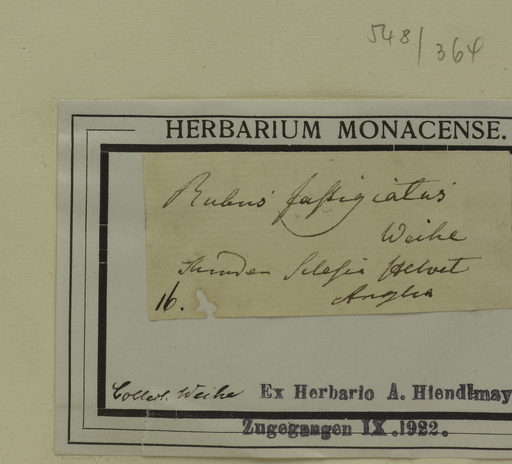 548/364
HERBARIUM MONACENSE.
Rubus fastigiatus
Weihe
Minden Silesia Helvet
Anglia
16.
Collect. Weihe
Ex Herbario A. Hiendlmay
Zugegangen IX.1922.